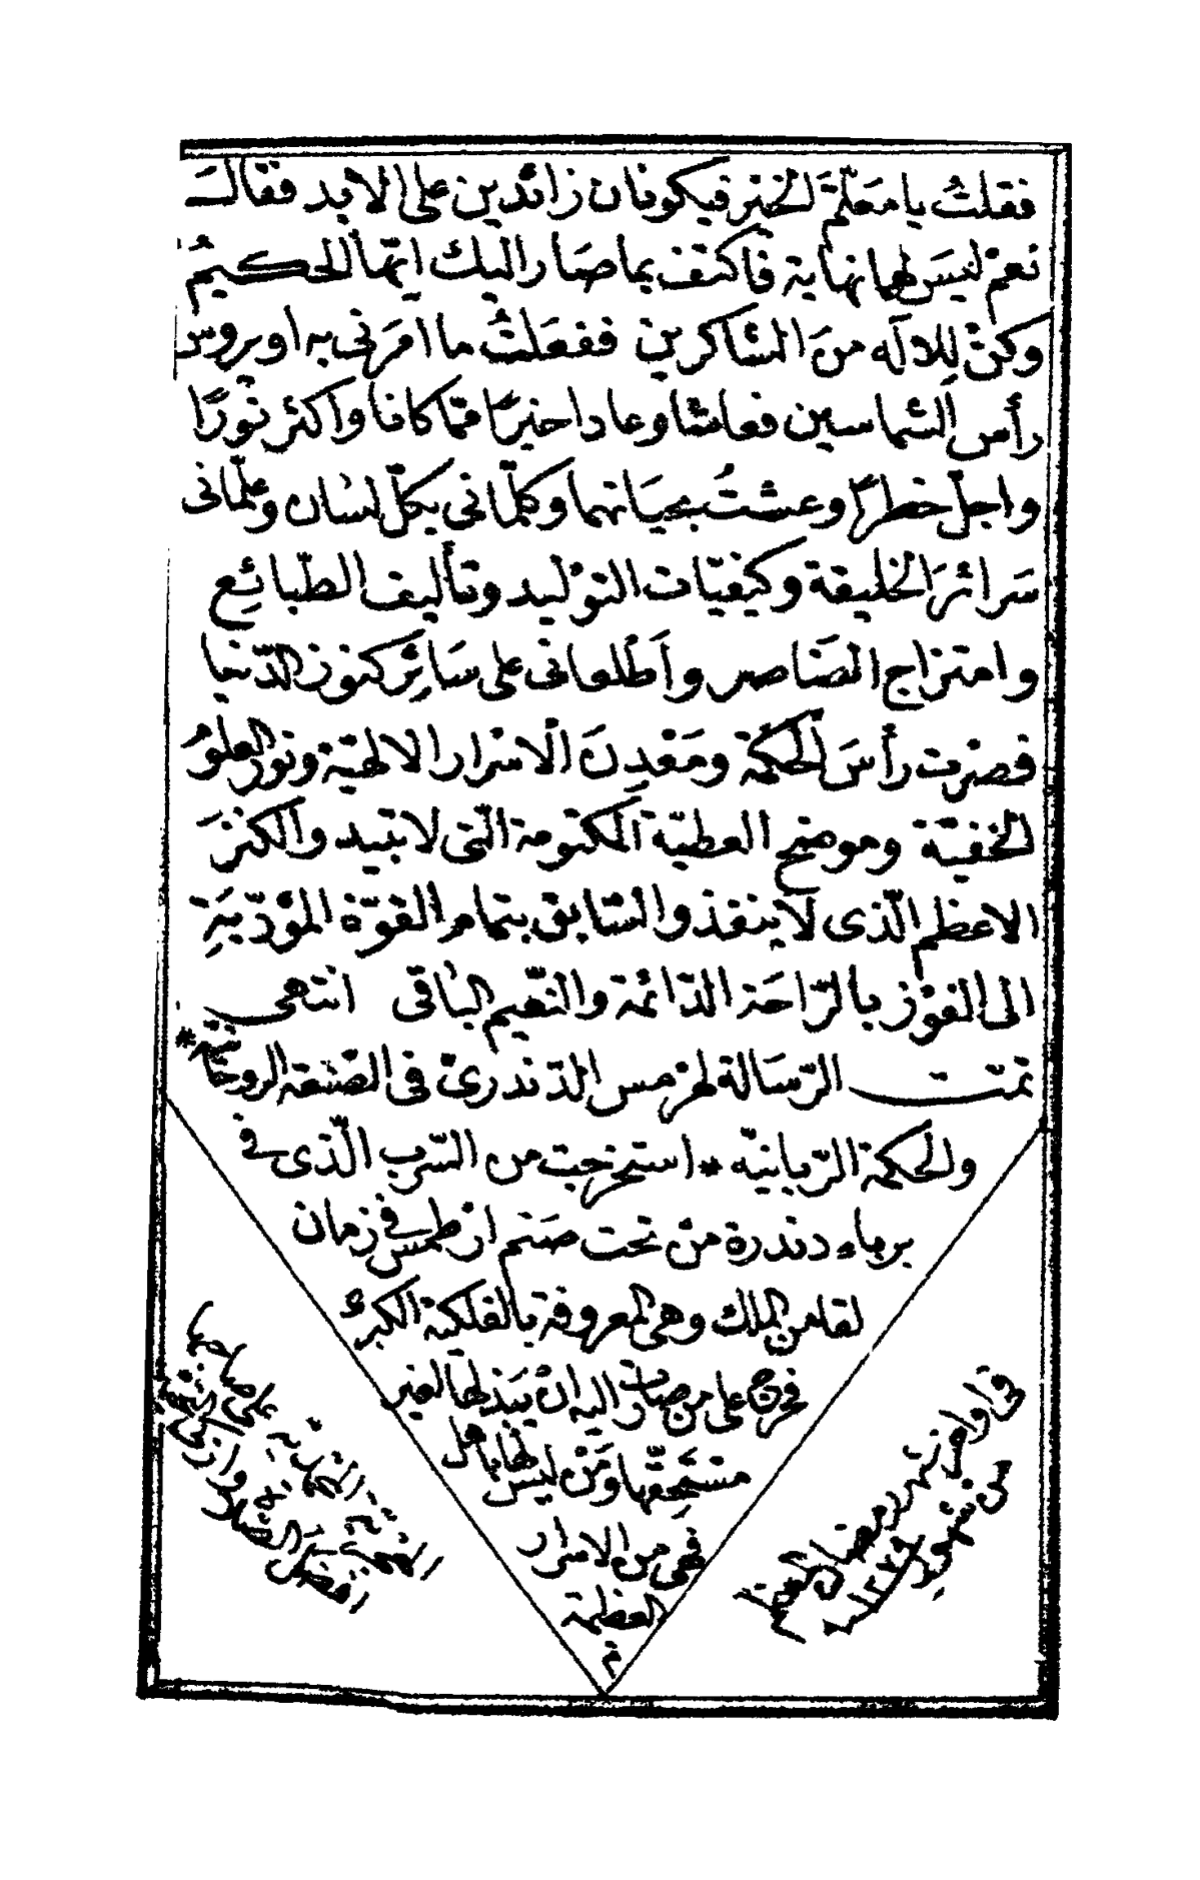 فقلتُ يا معَلّمَ الخيْر فيكونان زائدين على الابد فقالَ
نعمْ ليسَ لهما نهاية فاكتف بما صَار اليك ايّها الحكيمُ
وكنْ لِلالَه منَ الشاكرين ففعَلتُ ما امَرَنى به اوبروس
رأس الشماسين فعاشا وعادا خيرًا ممّا كانا واكثر نورًا
واجلّ خطرًا وعشتُ بحيَاتهما وكلّمانى بكلّ لسٰان وعلّمانى
سَرائرَ الخليقة وكيفيّات التوْليد وتأليف الطّبائِع
وامتزاج العَناصر وأطْلعانى على سَائِر كنوز الدّنيا
فصْرت رأسَ الحكمَة ومَعْدِنَ الْاسْرار الالهيّة ونور العلومُ
الخفيّة وموضع العطيّة المكتومة الّتى لا تبيد والكنزَ
الاعظم الّذى لَا ينفذ والسّابق بتمام القوّة المؤدّيَةِ
الى الفوْز بالرّاحَة الدّائمة والنّعيم البٰاقى انتهى
تمّت الرّسَالة لهرْمس الدّندرىّ فى الصّنعة الروحانيّه *
والحكمة الرّبانيّه * استخرجت من السّرب الّذى فى
برباء دندرة منْ تحت صَنم ارْطمس فى زمان
لقامن الملك وهى المعروفة بالفلكية الكبرىٰ
فحرج على من صارت اليه انْ يبَذلها لغير
مسْتحِقّها ومَنْ ليسَ لها باهل
فهى من الاسرار
العظيمة
تم
فى اواخر شهر رمضان المعظم
من شهور
سنة ١٢٧٩
الهجريّة النبويّة على صاحبها
افضل الصّلاة وازكى التحيّة